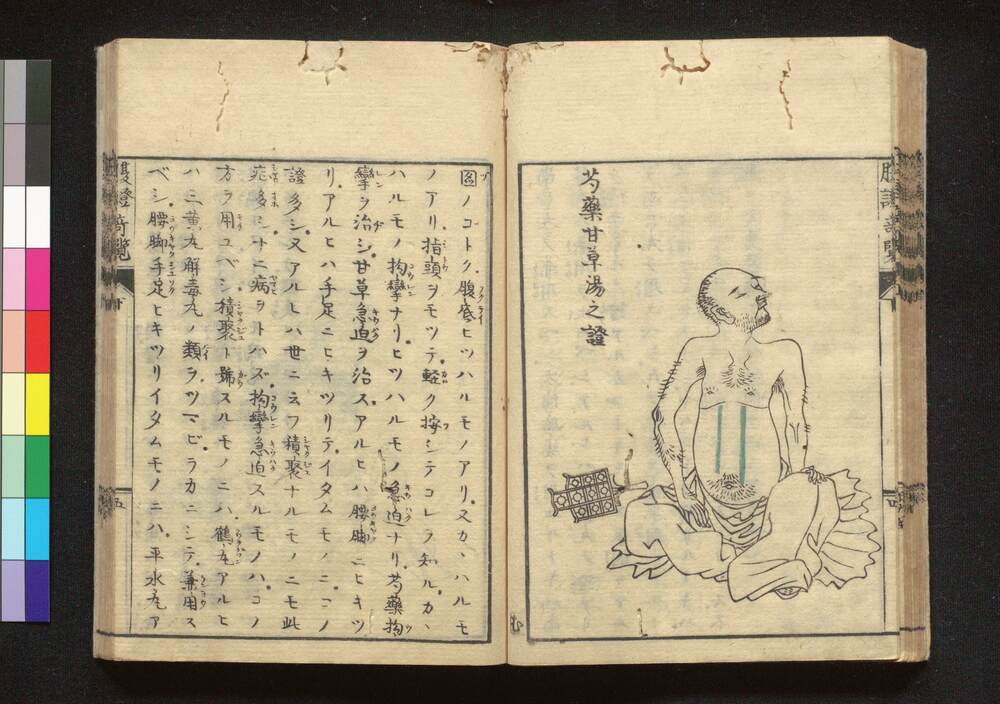 芍藥甘草湯之證
圖ノコトク腹底ヒツハルモノアリ又カヽハルモ
ノアリ指頭ヲモツテ輕ク按シテコレヲ知ルカヽ
ハルモノ拘攣ナリヒツハルモノ急迫ナリ芍藥拘
攣ヲ治シ甘草急迫ヲ治スアルヒハ腰脚ニヒキツ
リアルヒハ手足ニヒキツリテイタムモノニコノ
證多シ又アルヒハ世ニ云フ積聚ナルモノニモ此
症多シサレ𪜈病ヲトハズ拘攣急迫スルモノハコノ
方ヲ用ユベシ積聚ト號スルモノニハ鶴丸アルヒ
ハ三黄丸解毒丸ノ類ヲツマビラカニシテ兼用ス
ベシ腰脚手足ヒキツリイタムモノニハ平水丸ア
腹證奇覽
下
五